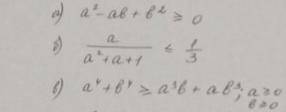 а) a² - ab + b² ≥ 0
б) a / (a² + a + 1) ≤ 1/3
в) a⁴ + b⁴ ≥ a³b + ab³; a ≥ 0
b ≥ 0